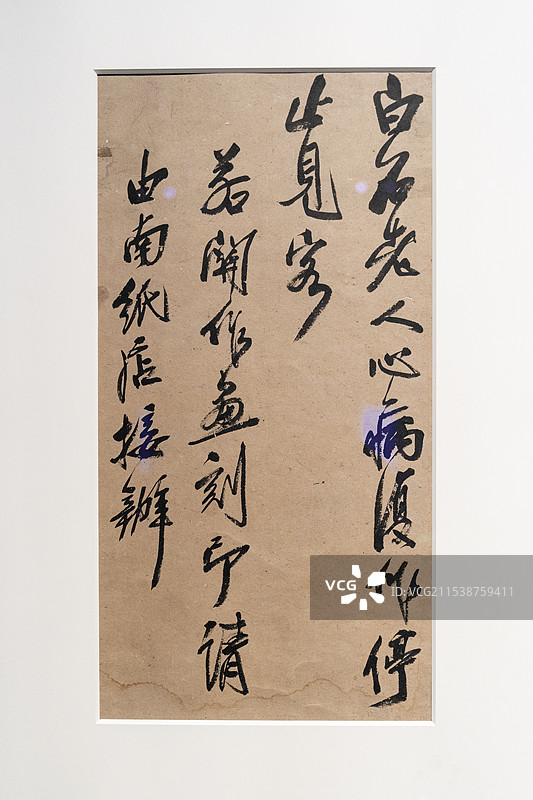 白石老人心病復作停
止見客
若関作画刻印請
由南紙店接辦
VCG
ID:VCG211538759411